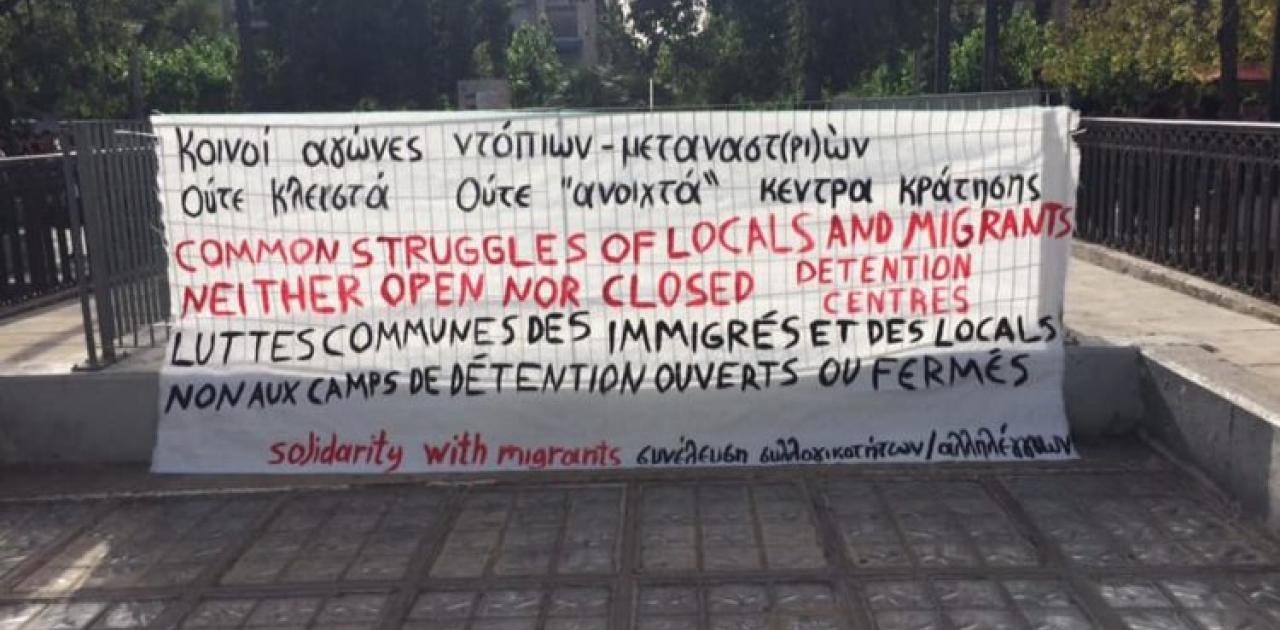 Κοινοί αγώνες ντόπιων - μεταναστ(ρι)ών
Ούτε κλειστά Ούτε "ανοιχτά" κεντρα κράτησης
COMMON STRUGGLES OF LOCALS AND MIGRANTS
NEITHER OPEN NOR CLOSED DETENTION CENTRES
LUTTES COMMUNES DES IMMIGRÉS ET DES LOCALS
NON AUX CAMPS DE DÉTENTION OUVERTS OU FERMÉS
solidarity with migrants συνέλευση συλλογικοτήτων/αλληλέγγυων